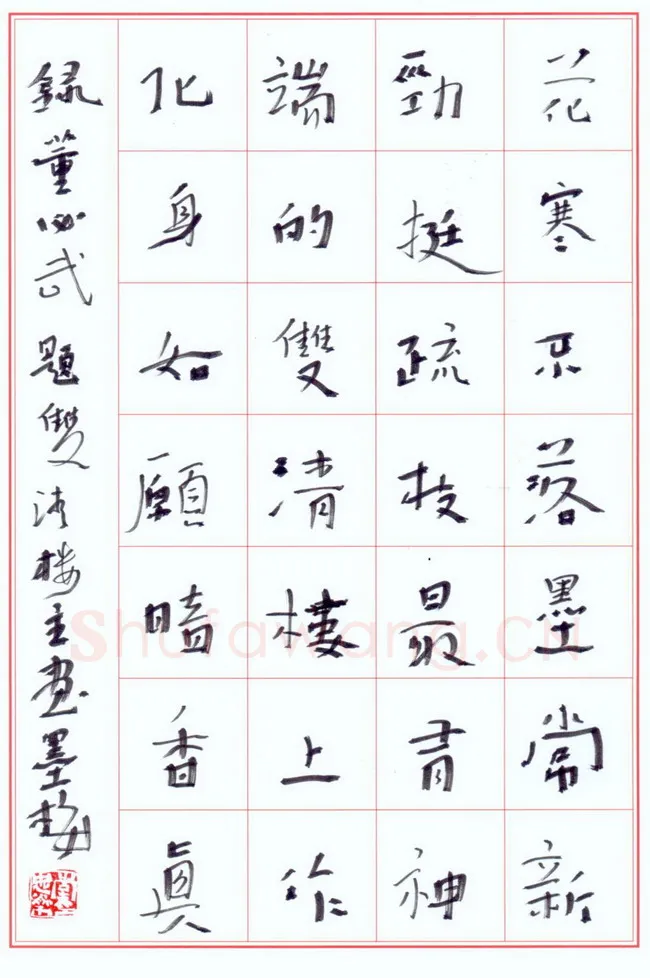 花寒不落墨常新
勁挺疏枝最肖神
端的雙清樓上作
化身如願香眞
錄董必武題雙清楼主畫墨梅
Shufawang.CN